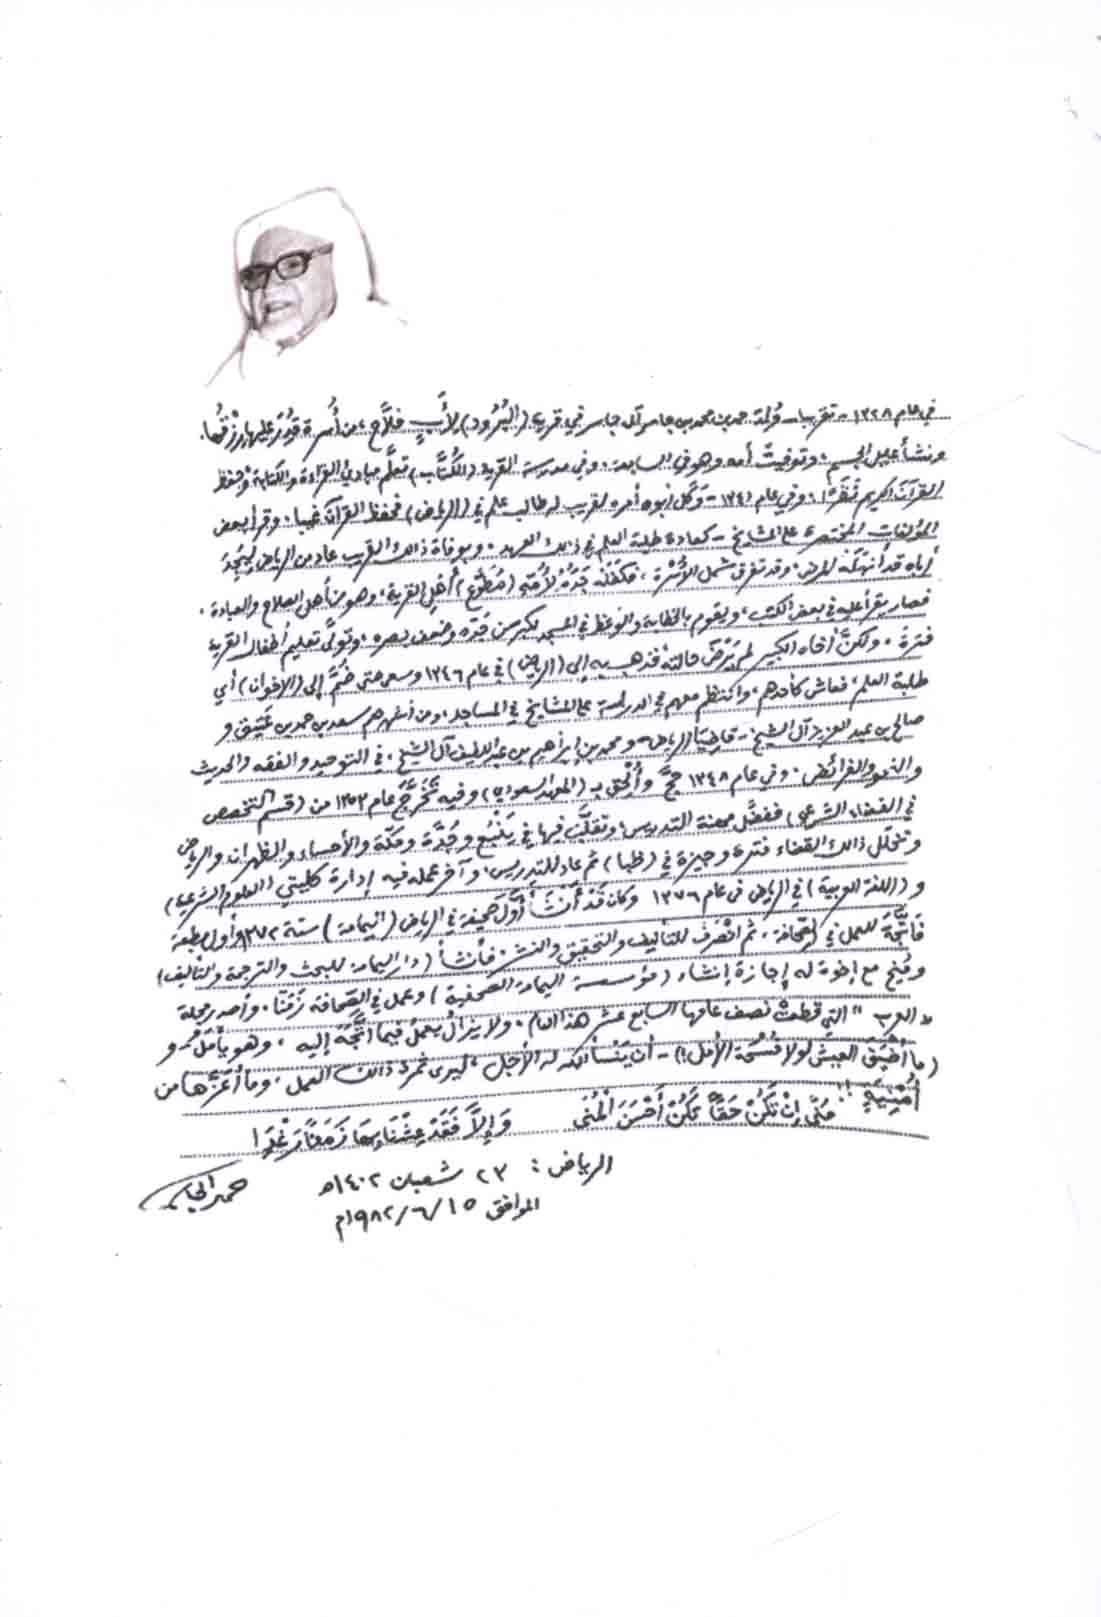 في عام ١٣٢٨ - تقريبا - وُلد حمد بن محمد بن جاسر آل جاسر في قرية (البُرُود) لأَبٍ فلَّاحٍ، من أُسرة قُدِرَ عليها رزقُها.
ونشأ عليل الجسم، وتوفيتْ أمه وهو في السابعة. وفي مدرسة القرية (الكُتَّاب) تعلَّم مبادئ القراءة والكتابة وحفظ
القرآن الكريم نَظَرًا. وفي عام ١٣٤١ - وَكَل أبوه أمره لقريب له طالب علم في (الرياض) فحفظ القرآن غيبا. وقرأ بعض
المؤلفات المختصرة على المشايخ - كعادة طلبة العلم في ذلك العهد. وبوفاة ذلك القريب عاد من الرياض ليَجِدَ
أباه قد أنهكَهُ المرض، وقد تفرق شمل الأُسْرة، فكفله جَدُّهُ لأُمِّهِ (مُطَوَّع) أهل القرية، وهو من أهل الصلاح والعبادة.
فصار يقرأ عليه في بعض الكتب، ويقوم بالخطابة والوعظ في المسجد لكبر سن جَدِّه وضعف بصره. وتولَّى تعليم أطفال القرية
فترة. ولكنَّ أخاه الكبير لم يَرْضَ حالته، فذهب به إلى (الرياض) في عام ١٣٤٦ وسعى حتى ضُمَّ إلى (الإخوان) أي
طلبة العلم، فعاش كأحدهم، وانتظم معهم في الدراسة على المشايخ في المساجد، ومن أشهرهم سعد بن حمد بن عَتِيق و
صالح بن عبد العزيز آل الشيخ - قاضيا الرياض - ومحمد بن إبراهيم بن عبد اللطيف آل الشيخ، في التوحيد والفقه والحديث
والنحو والفرائض. وفي عام ١٣٤٨ حَجَّ وأُلْحق بـ (المعهد السعودي) وفيه تَخَرَّجَ عام ١٣٥٣ من (قسم التخصص
في القضاء الشرعي) ففضَّل مهنة التدريس، وتقلَّبَ فيها في يَنْبُع وجُدَّة ومكّة والأحساء والظهران والرياض
وتخلّل ذلك القضاء فترة وجيزة في (ظبا) ثم عاد للتدريس، وآخر عمله فيه إدارة كليتي (العلوم الشرعية)
و (اللغة العربية) في الرياض في عام ١٣٧٦ وكان قَدْ أَنْشَأَ أوَّلَ صحيفة في الرياض (اليمامة) سنة ١٣٧٢ وأول مطبعة
فاتَّجَهَ للعمل في الصّحافة. ثم انْصَرَفَ للتأليف والتحقيق والنشر. فأنشأ (دار اليمامة للبحث والترجمة والتأليف)
ومُنِحَ مع إخوة له إجازة إنشاء (مؤسسة اليمامة الصحفية) وعمل في الصّحافة زَمَنًا. وأصدر مجلة
"العرب" التي قطعتْ نصف عامها السابع عشر هذا العام. ولا يزالُ يعملُ فيما اتَّجَهَ إليه. وهو يأْمَلُ - و
(ما أضيَقَ العيشَ لولا فُسْحَةُ الأَمَلِ!) - أن يَنْسَأ الله له الأجل، ليرى ثمرة ذلك العمل. وما أعَزَّها من
أُمْنِيَةٍ!!
مُنًى إنْ تَكُنْ حَقًّا تَكُنْ أَحْسَنَ الْمُنَى وَإِلَّا فَقَدْ عِشْنَا بِهَا زَمَنًا رَغْدَا
الرياض: ٢٣ شعبان ١٤٠٢هـ
الموافق ١٥/٦/١٩٨٢م
حمد الجاسر